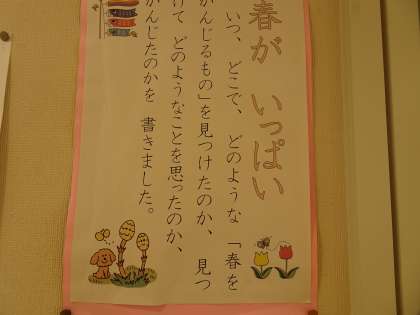 春が いっぱい
いつ、どこで、どのような「春を
かんじるもの」を見つけたのか、見つ
けて どのようなことを思ったのか、
かんじたのかを 書きました。